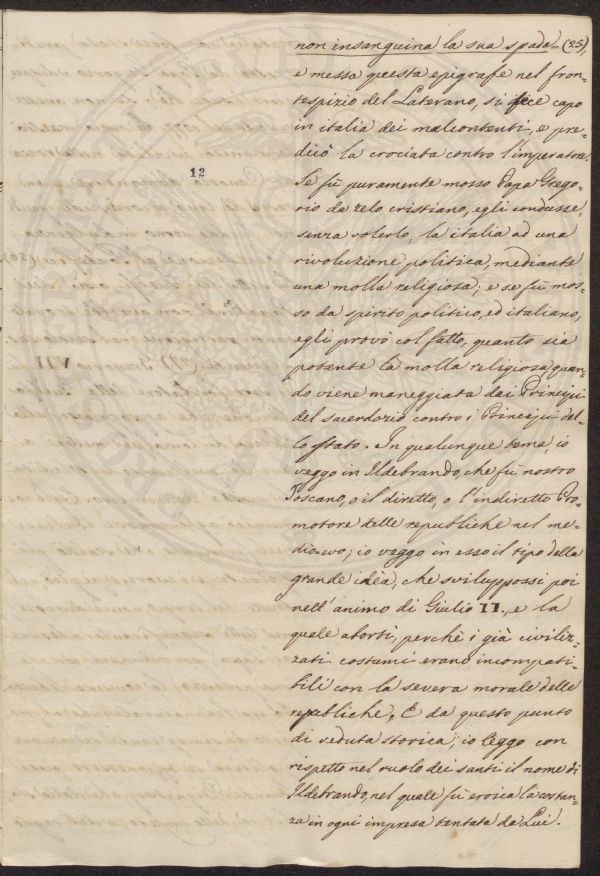 non insanguina la sua spada = (25),
e messa questa epigrafe nel fron=
tespizio del Laterano, si fece capo
in italia dei malcontenti, e pre=
dicò la crociata contro l'imperatore.
12
Se fù puramente mosso Papa Grego=
rio da zelo cristiano, egli condusse,
senza volerlo, la italia ad una
rivoluzione politica, mediante
una molla religiosa; e se fù mos=
so da spirito politico, ed italiano,
egli provò col fatto, quanto sia
potente la molla religiosa, quan=
do viene maneggiata dai Principi
del sacerdozio contro i Principi del=
lo stato. In qualunque tema, io
veggo in Ildebrando, che fù nostro
Toscano, o il diretto, o l'indiretto Pro=
motore delle republiche nel me=
dio=evo; io veggo in esso il tipo della
grande idèa, che sviluppossi poi
nell'animo di Giulio II., e la
quale abortì, perchè i già civiliz=
zati costumi erano incompati=
bili con la severa morale delle
republiche. E da questo punto
di veduta storica, io leggo con
rispetto nel ruolo dei santi il nome di
Ildebrando, nel quale fù eroica la costan=
za in ogni impresa tentata da Lui.